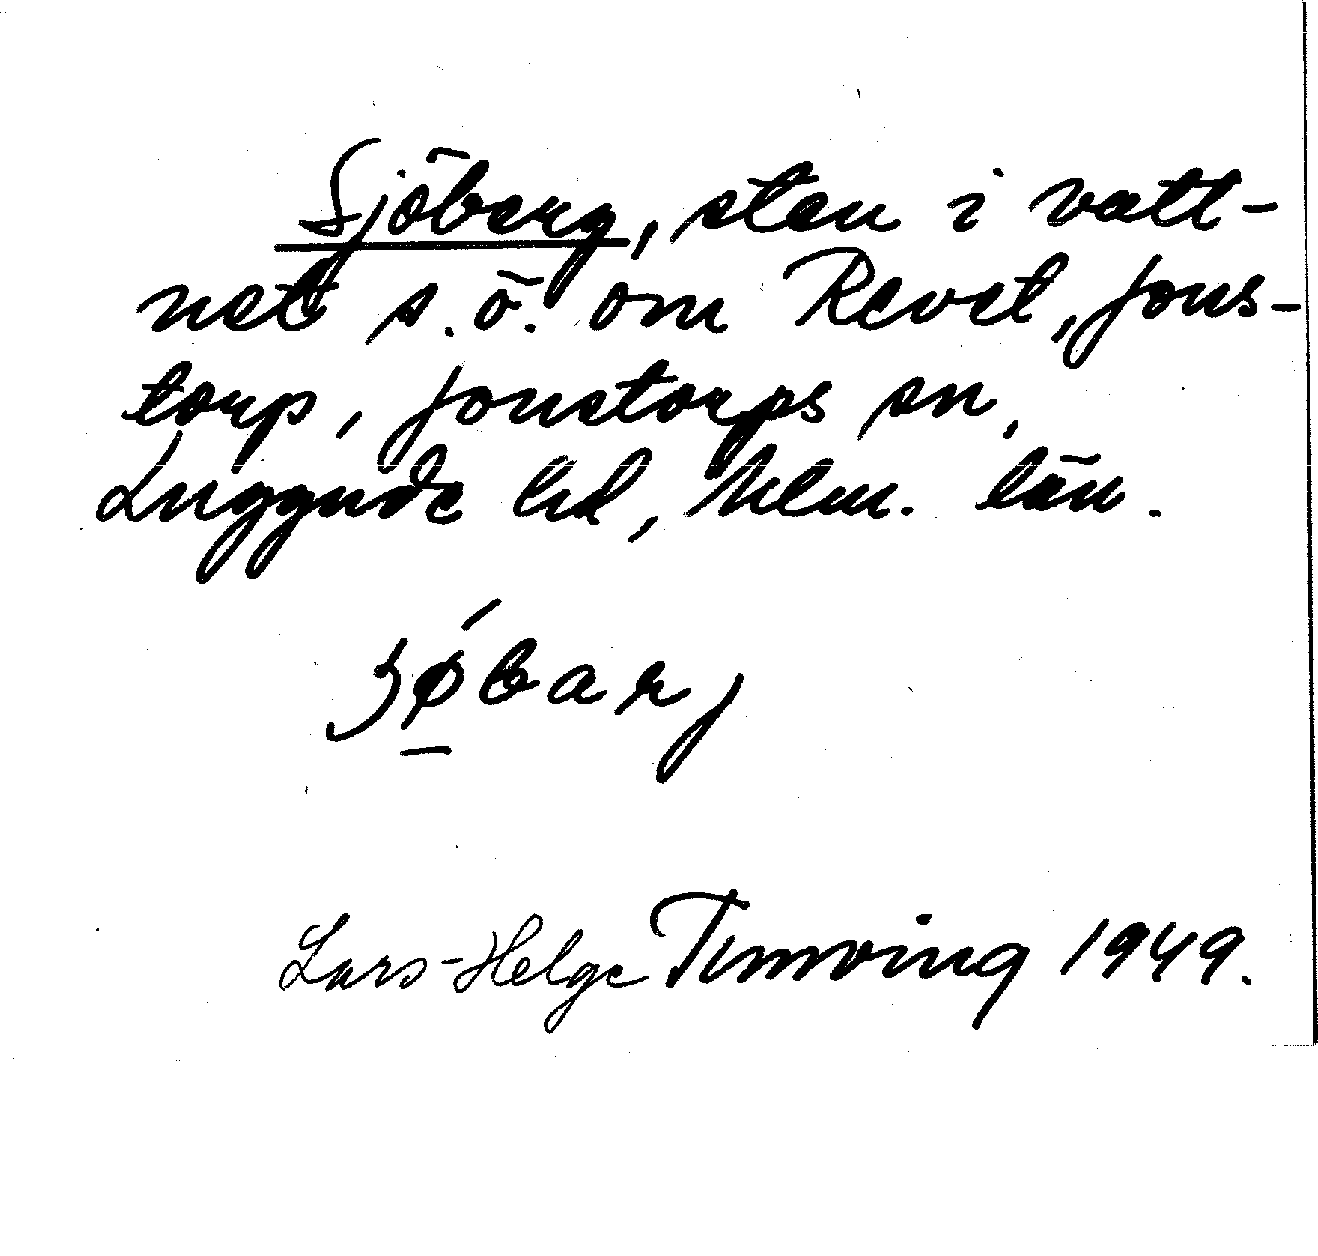 Sjöberg, sten i vatt-
net s.ö. om Revet, Jons-
torp, Jonstorps sn,
Luggude hd, Mlm. län.
ʒǿbarj
Lars-Helge Tunving 1949.